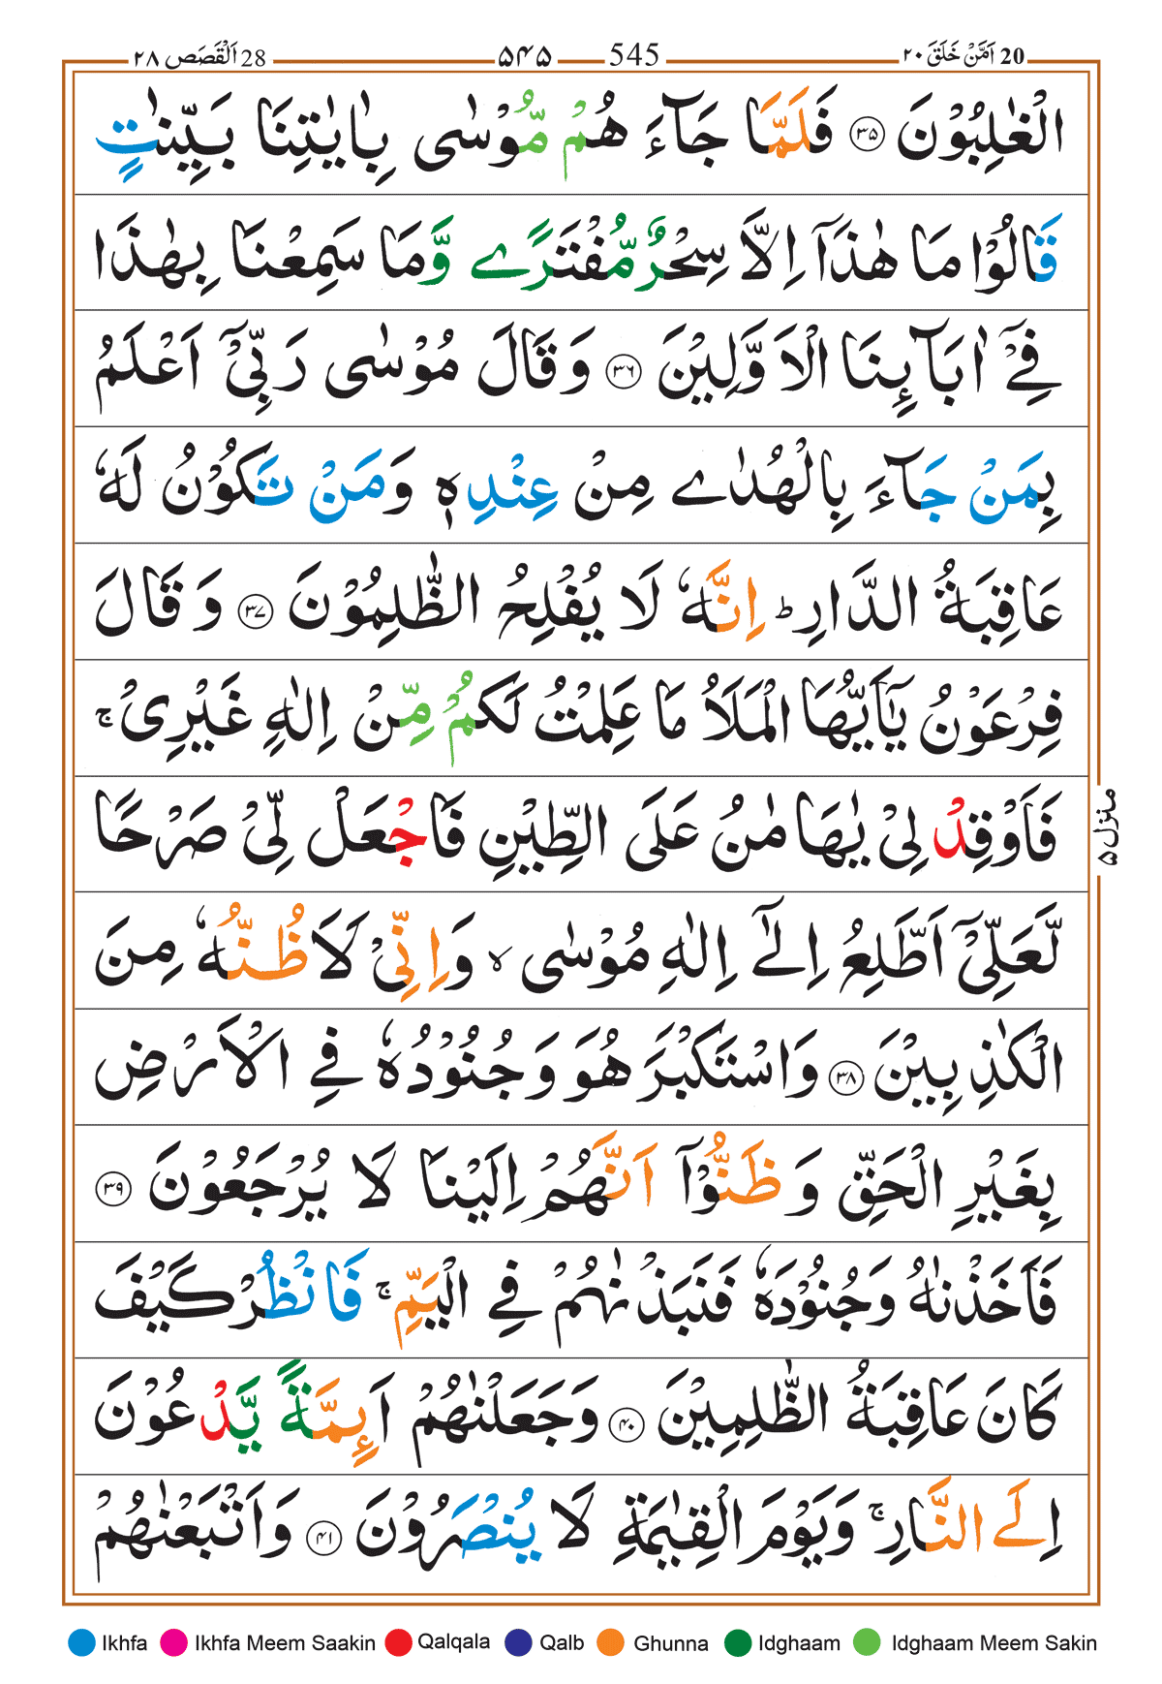 اَلْقَصَص ٢٨ 28 ۵۴۵ 545 اَمَّنْ خَلَقَ ٢٠ 20
الْغٰلِبُوْنَ ﴿۳۵﴾ فَلَمَّا جَآءَ هُمْ مُّوْسٰى بِاٰيٰتِنَا بَيِّنٰتٍ
قَالُوْا مَا هٰذَآ اِلَّا سِحْرٌ مُّفْتَرًے وَّمَا سَمِعْنَا بِهٰذَا
فِيْٓ اٰبَآئِنَا الْاَوَّلِيْنَ ﴿۳۶﴾ وَقَالَ مُوْسٰى رَبِّيْٓ اَعْلَمُ
بِمَنْ جَآءَ بِالْهُدٰے مِنْ عِنْدِهٖ وَمَنْ تَكُوْنُ لَهٗ
عَاقِبَةُ الدَّارِ ؕ اِنَّهٗ لَا يُفْلِحُ الظّٰلِمُوْنَ ﴿۳۷﴾ وَقَالَ
فِرْعَوْنُ يٰٓاَيُّهَا الْمَلَاُ مَا عَلِمْتُ لَكُمْ مِّنْ اِلٰهٍ غَيْرِىْ ۚ
فَاَوْقِدْ لِىْ يٰهَا مٰنُ عَلَى الطِّيْنِ فَاجْعَلْ لِّىْ صَرْحًا
لَّعَلِّىْٓ اَطَّلِعُ اِلٰٓے اِلٰهِ مُوْسٰى ۙ وَاِنِّىْ لَاَظُنُّهٗ مِنَ
الْكٰذِبِيْنَ ﴿۳۸﴾ وَاسْتَكْبَرَ هُوَ وَجُنُوْدُهٗ فِے الْاَرْضِ
بِغَيْرِ الْحَقِّ وَظَنُّوْٓا اَنَّهُمْ اِلَيْنَا لَا يُرْجَعُوْنَ ﴿۳۹﴾
فَاَخَذْنٰهُ وَجُنُوْدَهٗ فَنَبَذْنٰهُمْ فِے الْيَمِّ ۚ فَانْظُرْ كَيْفَ
كَانَ عَاقِبَةُ الظّٰلِمِيْنَ ﴿۴۰﴾ وَجَعَلْنٰهُمْ اَئِمَّةً يَّدْعُوْنَ
اِلَے النَّارِ ۚ وَيَوْمَ الْقِيٰمَةِ لَا يُنْصَرُوْنَ ﴿۴۱﴾ وَاَتْبَعْنٰهُمْ
منزل ۵
Ikhfa Ikhfa Meem Saakin Qalqala Qalb Ghunna Idghaam Idghaam Meem Sakin